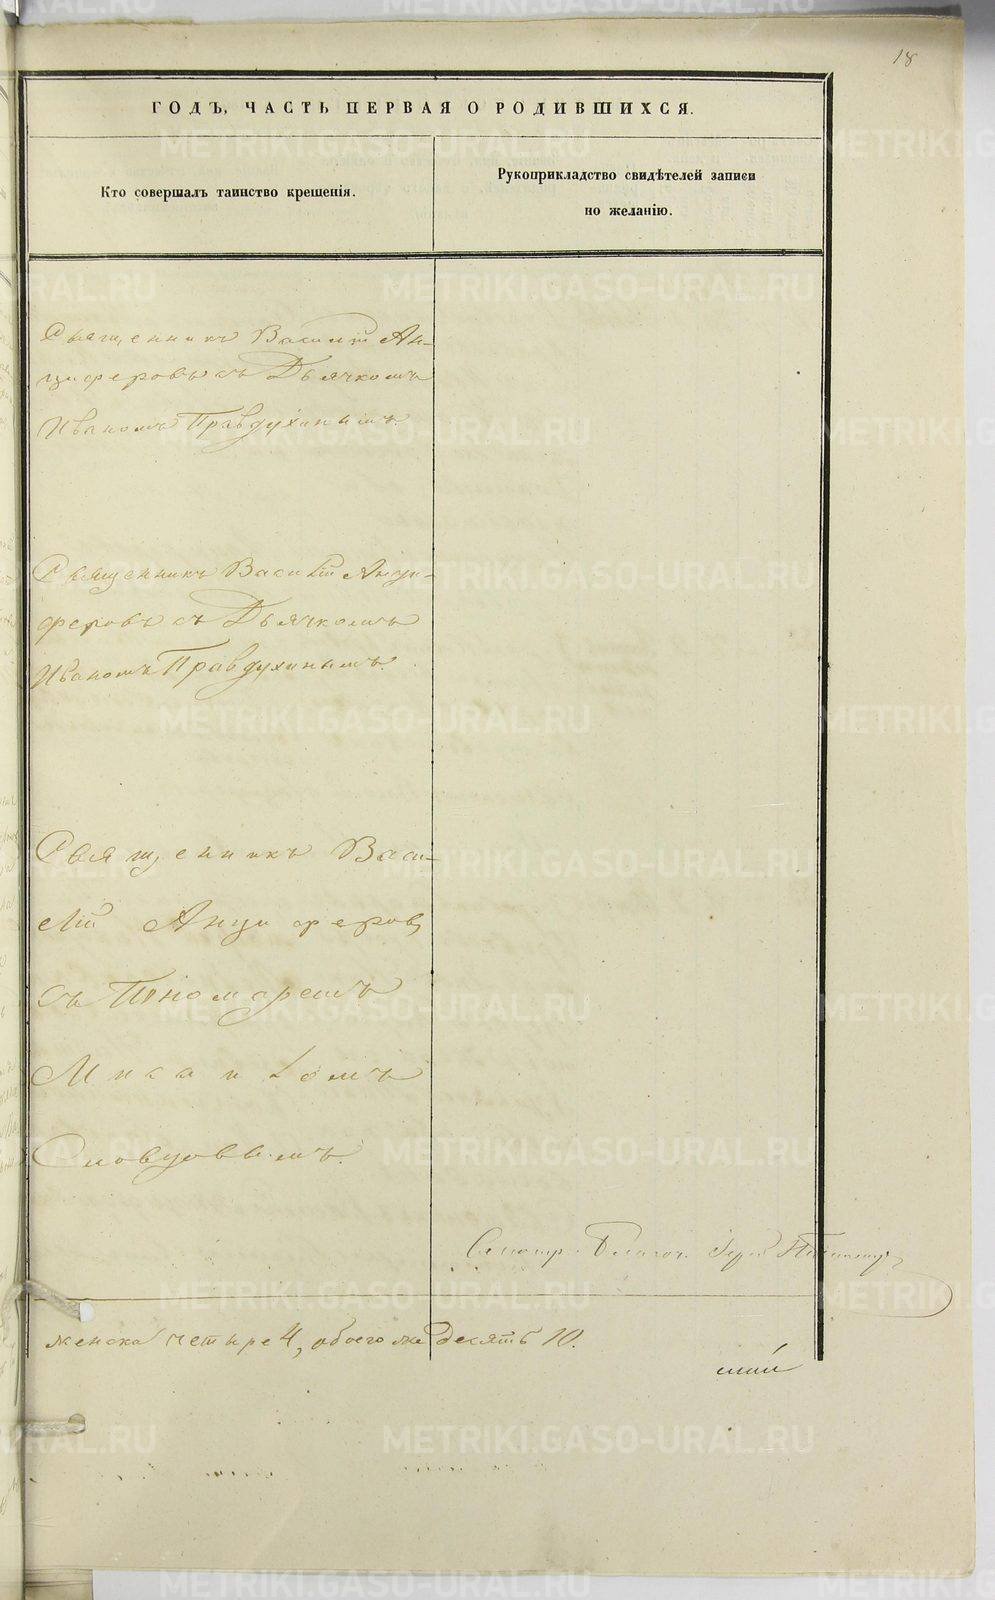 18
ГОДЪ, ЧАСТЬ ПЕРВАЯ О РОДИВШИХСЯ.
Кто совершалъ таинство крещенія.
Рукоприкладство свидѣтелей записи
по желанію.
Священникъ Василій Ан-
циферовъ съ Дьячкомъ
Иваномъ Правдухинымъ.
Священникъ Василій Анци-
феровъ съ Дьячкомъ
Иваномъ Правдухинымъ.
Священникъ Васи-
лій Анциферовъ
съ Пономаремъ
Словцовымъ.
Смотр. Благоч. Іерей
женска четыре 4, обоего же десять 10.
METRIKI.GASO-URAL.RU